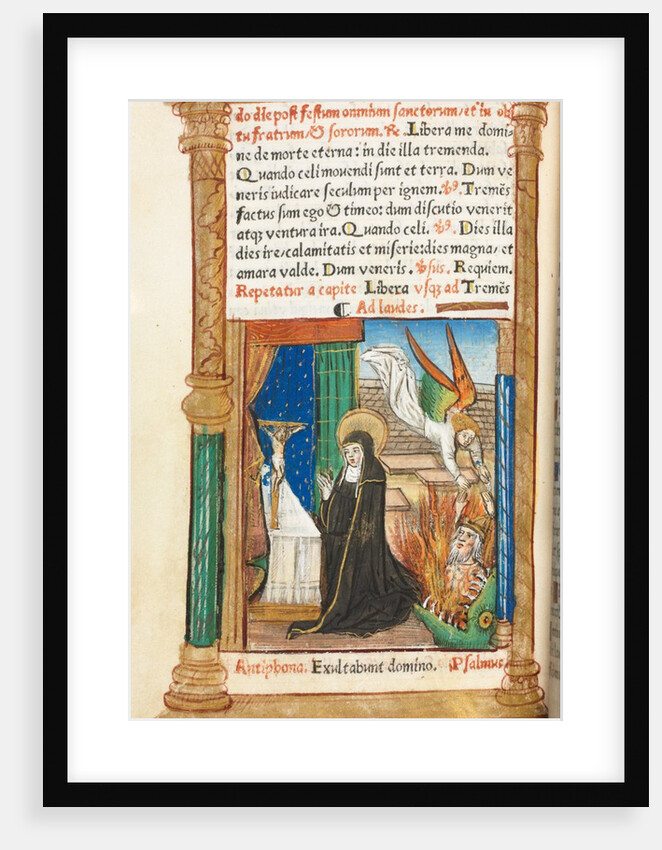 do die post festum omnium sanctorum/et in obi
tu fratrum/& sororum. ℟. Libera me domi⸗
ne de morte eterna: in die illa tremenda.
Quando celi mouendi sunt et terra. Dum ve
neris iudicare seculum per ignem. ℣. Tremēs
factus sum ego & timeo: dum discutio venerit
atqꝫ ventura ira. Quando celi. ℣. Dies illa
dies ire/calamitatis et miserie:dies magna/et
amara valde. Dum veneris. ℣sus. Requiem.
Repetatur a capite Libera vsqꝫ ad Tremēs
¶ Ad laudes.
Antiphona. Exultabunt domino. Psalmus